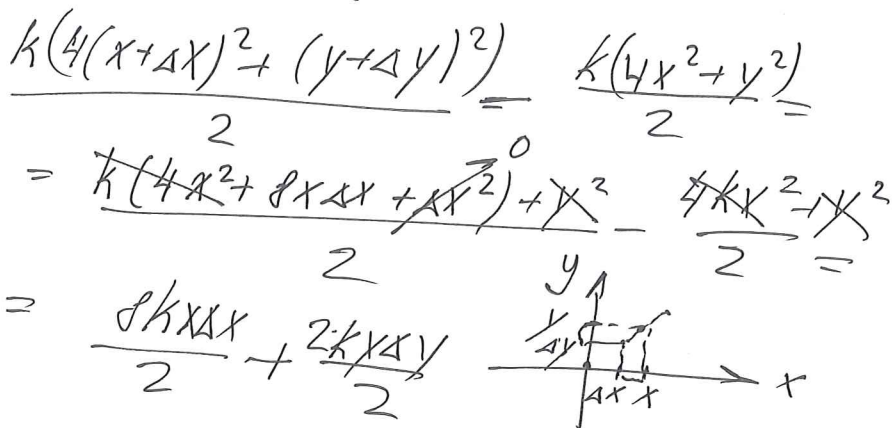 k(4(x+Δx)²+(y+Δy)²)/2 - k(4x²+y²)/2 =
= k(4x²+8xΔx+Δx²)+y²/2 - 4kx²+y²/2 = 0
= 8kxΔx/2 + 2kyΔy/2
y
y
Δy
Δx x x